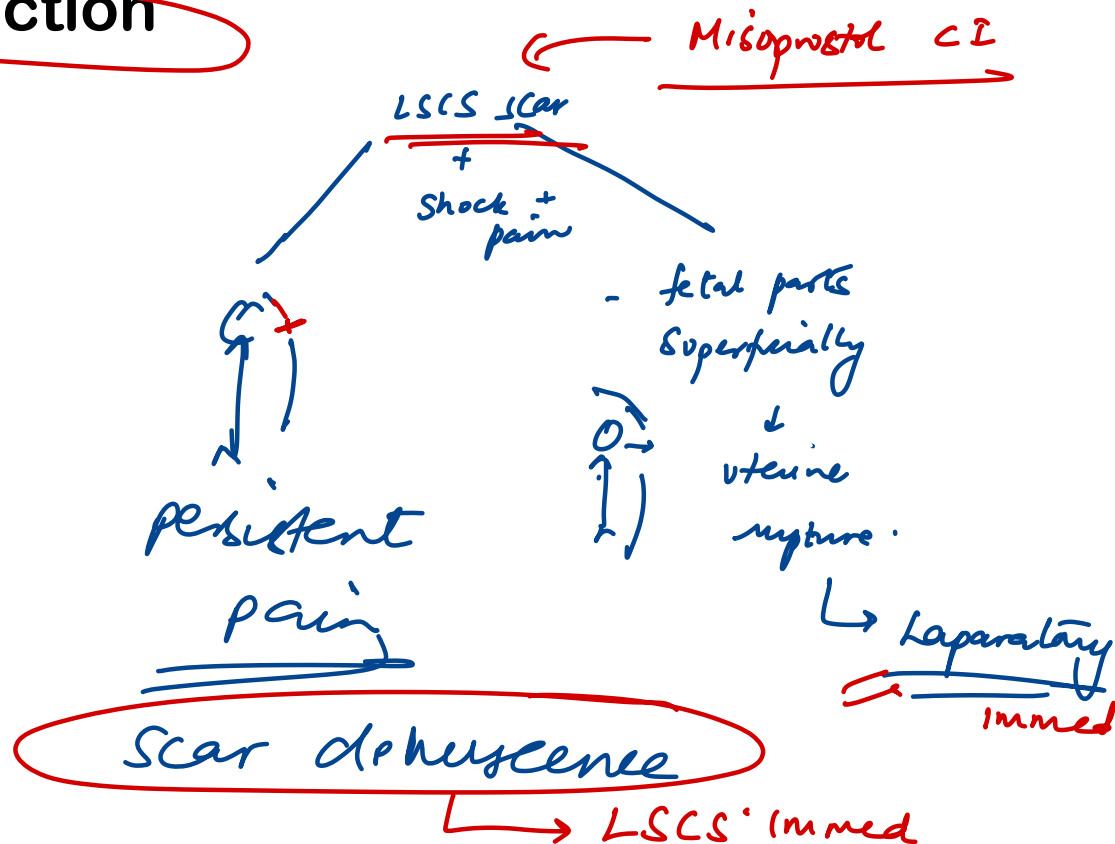 ction
Misoprostol CI
LSCS scar
+
Shock +
pain
- fetal parts
Superficially
↓
uterine
rupture.
Laparatory
immed
persistent
pain
scar dehuscence
LSCS immed